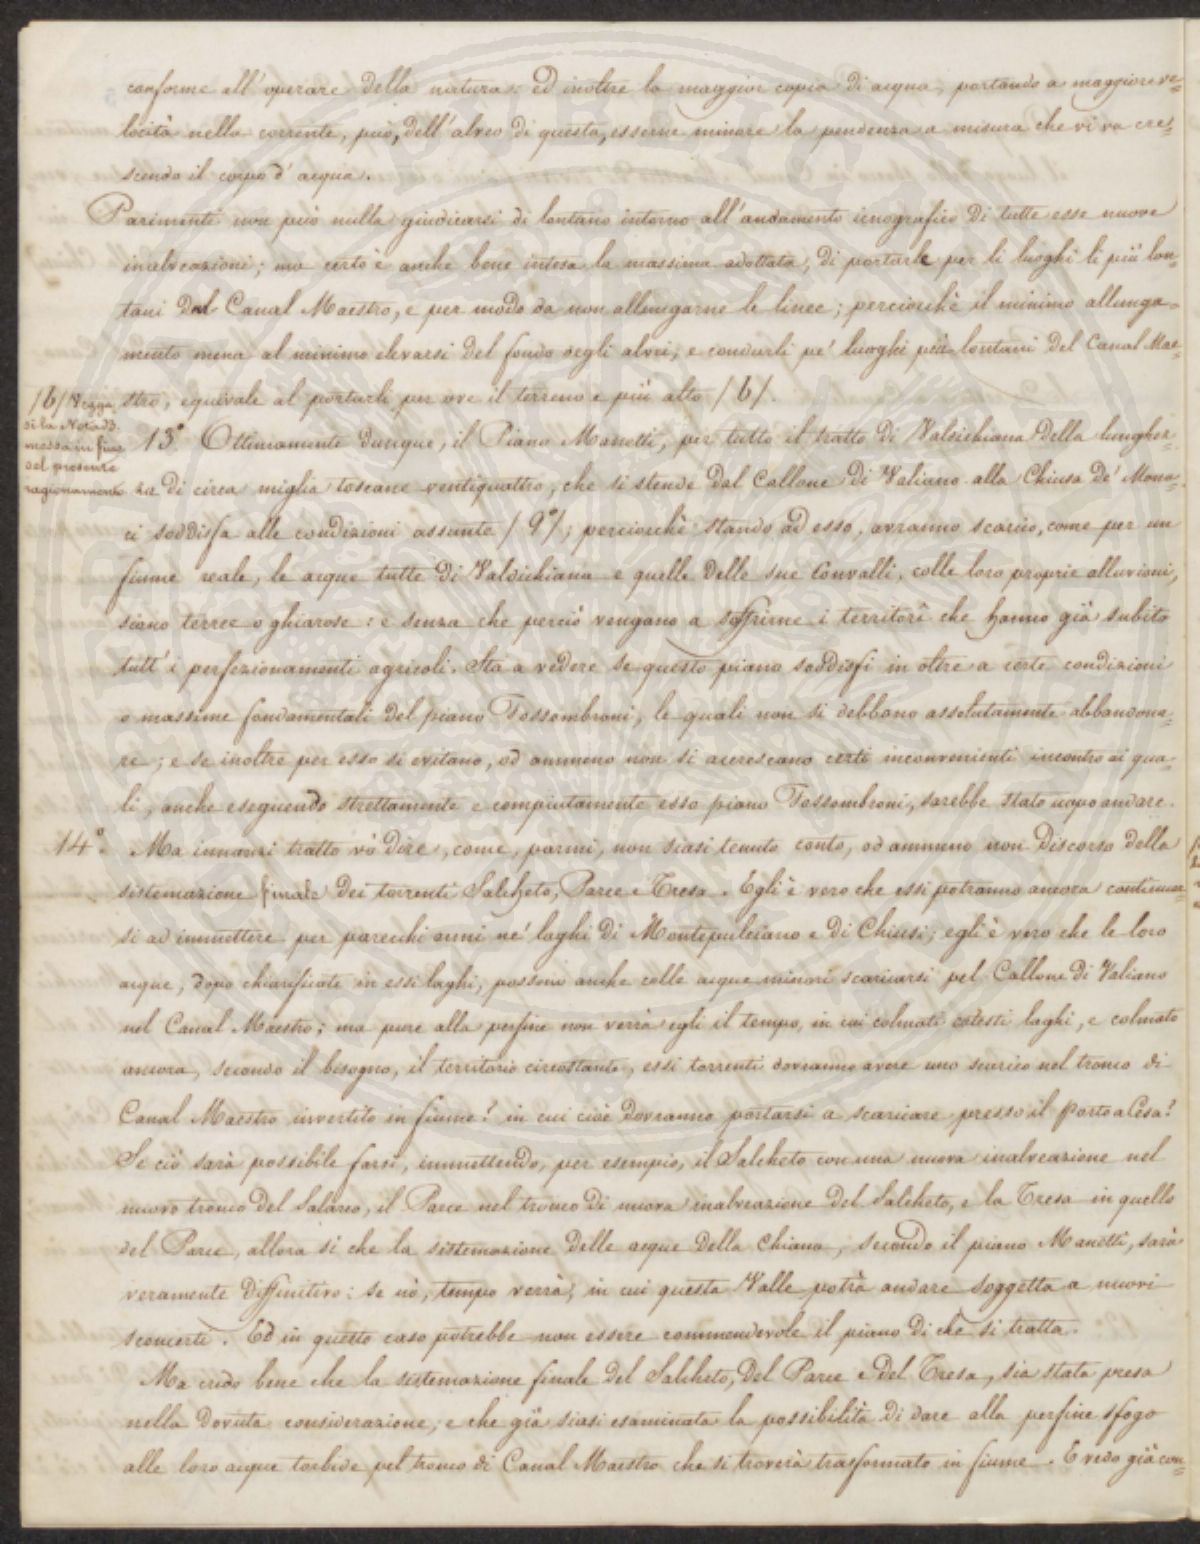 conforme all'operare della natura: ed inoltre la maggior copia di acqua, portando a maggiore ve=
locità nella corrente, può, dell'alveo di questa, esserne minore la pendenza a misura che vi va cre=
scendo il corpo d'acqua.
Parimenti non può nulla giudicarsi di lontano intorno all'andamento icnografico di tutte esse nuove
inalveazioni; ma certo è anche bene intesa la massima adottata, di portarle per li luoghi li più lon=
tani dal Canal Maestro, e per modo da non allungarne le linee; perciocchè il minimo allunga=
mento mena al minimo elevarsi del fondo degli alvei, e condurli pe' luoghi più lontani del Canal Mae=
stro, equivale al portarli per ove il terreno e più alto /b/.
/b/ Vegga
si la Nota
messa in fine
del presente
ragionamento
13.° Ottimamente dunque, il Piano Manetti, per tutto il tratto di Valdichiana della lunghez=
za di circa miglia toscane ventiquattro, che si stende dal Callone di Valiano alla Chiusa de' Mona=
ci soddisfa alle condizioni assunte /9°/; perciocchè stando ad esso, avranno scarico, come per un
fiume reale, le acque tutte di Valdichiana e quelle delle sue Convalli, colle loro proprie alluvioni,
siano terree o ghiarose: e senza che perciò vengano a soffrirne i territorî che hanno già subito
tutt'i perfezionamenti agricoli. Sta a vedere se questo piano soddisfi in oltre a certe condizioni
o massime fondamentali del piano Fossombroni, le quali non si debbono assolutamente abbandona=
re; e se inoltre per esso si evitano, od ammeno non si accrescano certi inconvenienti incontro ai qua=
li, anche eseguendo strettamente e compiutamente esso piano Fossombroni, sarebbe stato uopo andare.
14.° Ma innanzi tratto vò dire, come, parmi, non siasi tenuto conto, od ammeno non discorso della
sistemazione finale dei torrenti Salcheto, Parce e Tresa. Egli è vero che essi potranno ancora continuar=
si ad immettere per parecchi anni ne' laghi di Montepulciano e di Chiusi; egli è vero che le loro
acque, dopo chiarificate in essi laghi, possono anche colle acque minori scaricarsi pel Callone di Valiano
nel Canal Maestro; ma pure alla perfine non verrà egli il tempo, in cui colmati cotesti laghi, e colmato
ancora, secondo il bisogno, il territorio circostante, essi torrenti dovranno avere uno scarico nel tronco di
Canal Maestro invertito in fiume? in cui cioè dovranno portarsi a scaricare presso il Porto a Cesa?
Se ciò sarà possibile farsi, immettendo, per esempio, il Salcheto con una nuova inalveazione nel
nuovo tronco del Salarco, il Parce nel tronco di nuova inalveazione del Salcheto, e la Tresa in quello
del Parce, allora sì che la sistemazione delle acque della Chiana, secondo il piano Manetti, sarà
veramente diffinitivo: se nò, tempo verrà, in cui questa Valle potrà andare soggetta a nuovi
sconcerti. Ed in questo caso potrebbe non essere commendevole il piano di che si tratta.
Ma credo bene che la sistemazione finale del Salcheto, del Parce e del Tresa, sia stata presa
nella dovuta considerazione; e che già siasi esaminata la possibilità di dare alla perfine sfogo
alle loro acque torbide pel tronco di Canal Maestro che si troverà trasformato in fiume. E vedo già con=